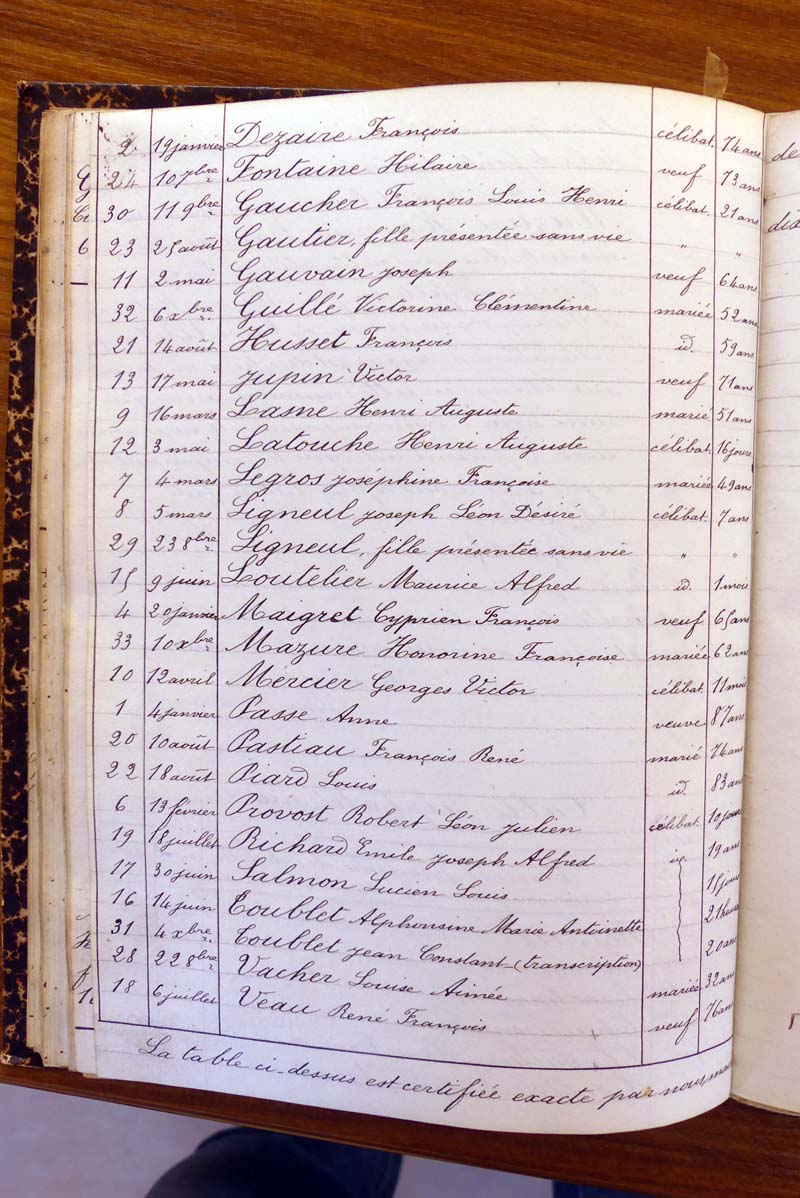 2 19 janvier Dezaire François célibat. 74 ans
24 10 7bre Fontaine Hilaire veuf 73 ans
30 11 9bre Gaucher François Louis Henri célibat. 21 ans
23 25 août Gautier, fille présentée sans vie " "
11 2 mai Gauvain Joseph veuf 64 ans
32 6 xbre Guillé Victorine Clémentine mariée 52 ans
21 14 août Husset François id. 59 ans
13 17 mai Jupin Victor veuf 71 ans
9 16 mars Lasne Henri Auguste marié 51 ans
12 3 mai Latouche Henri Auguste célibat. 16 jours
7 4 mars Legros Joséphine Françoise mariée 49 ans
8 5 mars Ligneul Joseph Léon Désiré célibat. 7 ans
29 23 8bre Ligneul, fille présentée sans vie " "
15 9 juin Loutelier Maurice Alfred id. 1 mois
4 20 janvier Maigret Cyprien François veuf 65 ans
33 10 xbre Mazure Honorine Françoise mariée 62 ans
10 12 avril Mercier Georges Victor célibat. 11 mois
1 4 janvier Passe Anne veuve 87 ans
20 10 août Pastiau François René marié 76 ans
22 18 août Piard Louis id. 83 ans
6 13 février Provost Robert Léon Julien célibat. 10 jours
19 18 juillet Richard Emile Joseph Alfred id. 19 ans
17 30 juin Salmon Lucien Louis 15 jours
16 14 juin Toublet Alphonsine Marie Antoinette 21 heures
31 4 xbre Toublet Jean Constant (transcription) 20 ans
28 22 8bre Vacher Louise Aimée mariée 32 ans
18 6 juillet Veau René François veuf 76 ans
La table ci-dessus est certifiée exacte par nous,
de